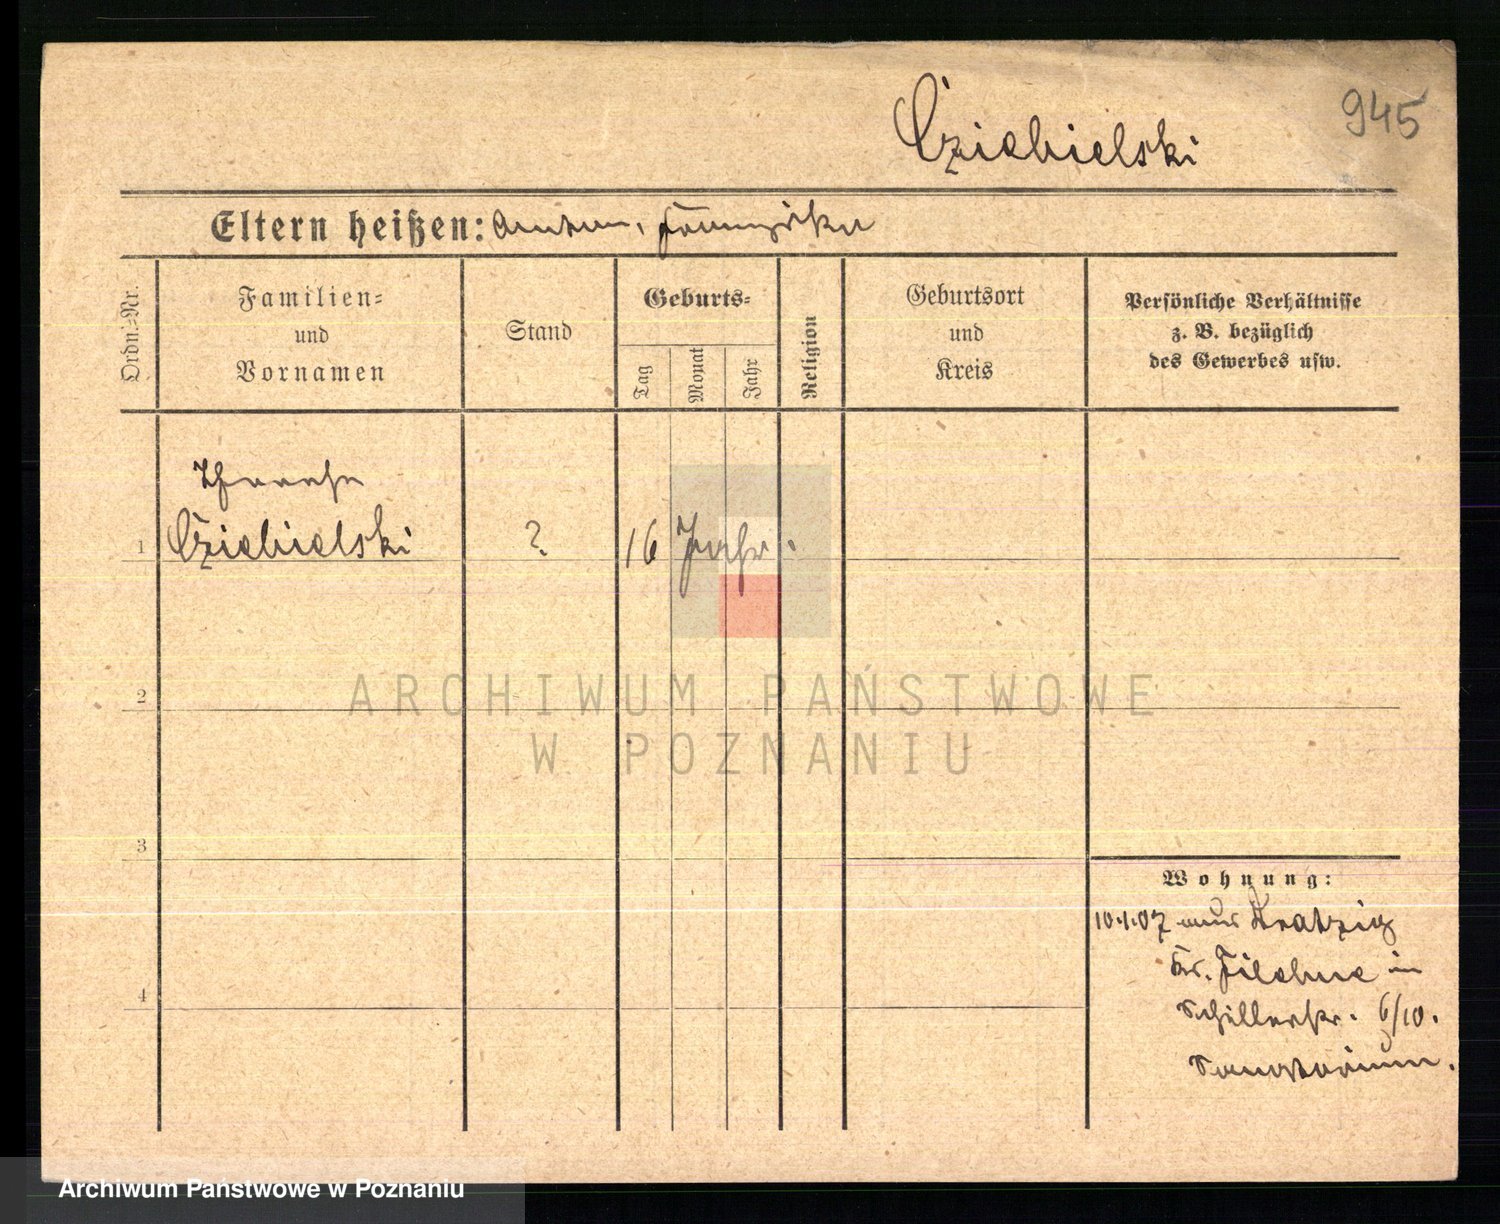 945
Cziebielski
Eltern heißen: Anton, Franziska
Ordn.-Nr.
Familien-
und
Vornamen
Stand
Geburts-
Tag
Monat
Jahr
Religion
Geburtsort
und
Kreis
Persönliche Verhältnisse
z. B. bezüglich
des Gewerbes usw.
Therese
1 Cziebielski ? 16 Jahr.
2
ARCHIWUM PAŃSTWOWE
W POZNANIU
3
4
Wohnung:
10.1.07 aus
Kr. Filehne in
Schillerstr. 6/10.
Sanatorium.
Archiwum Państwowe w Poznaniu